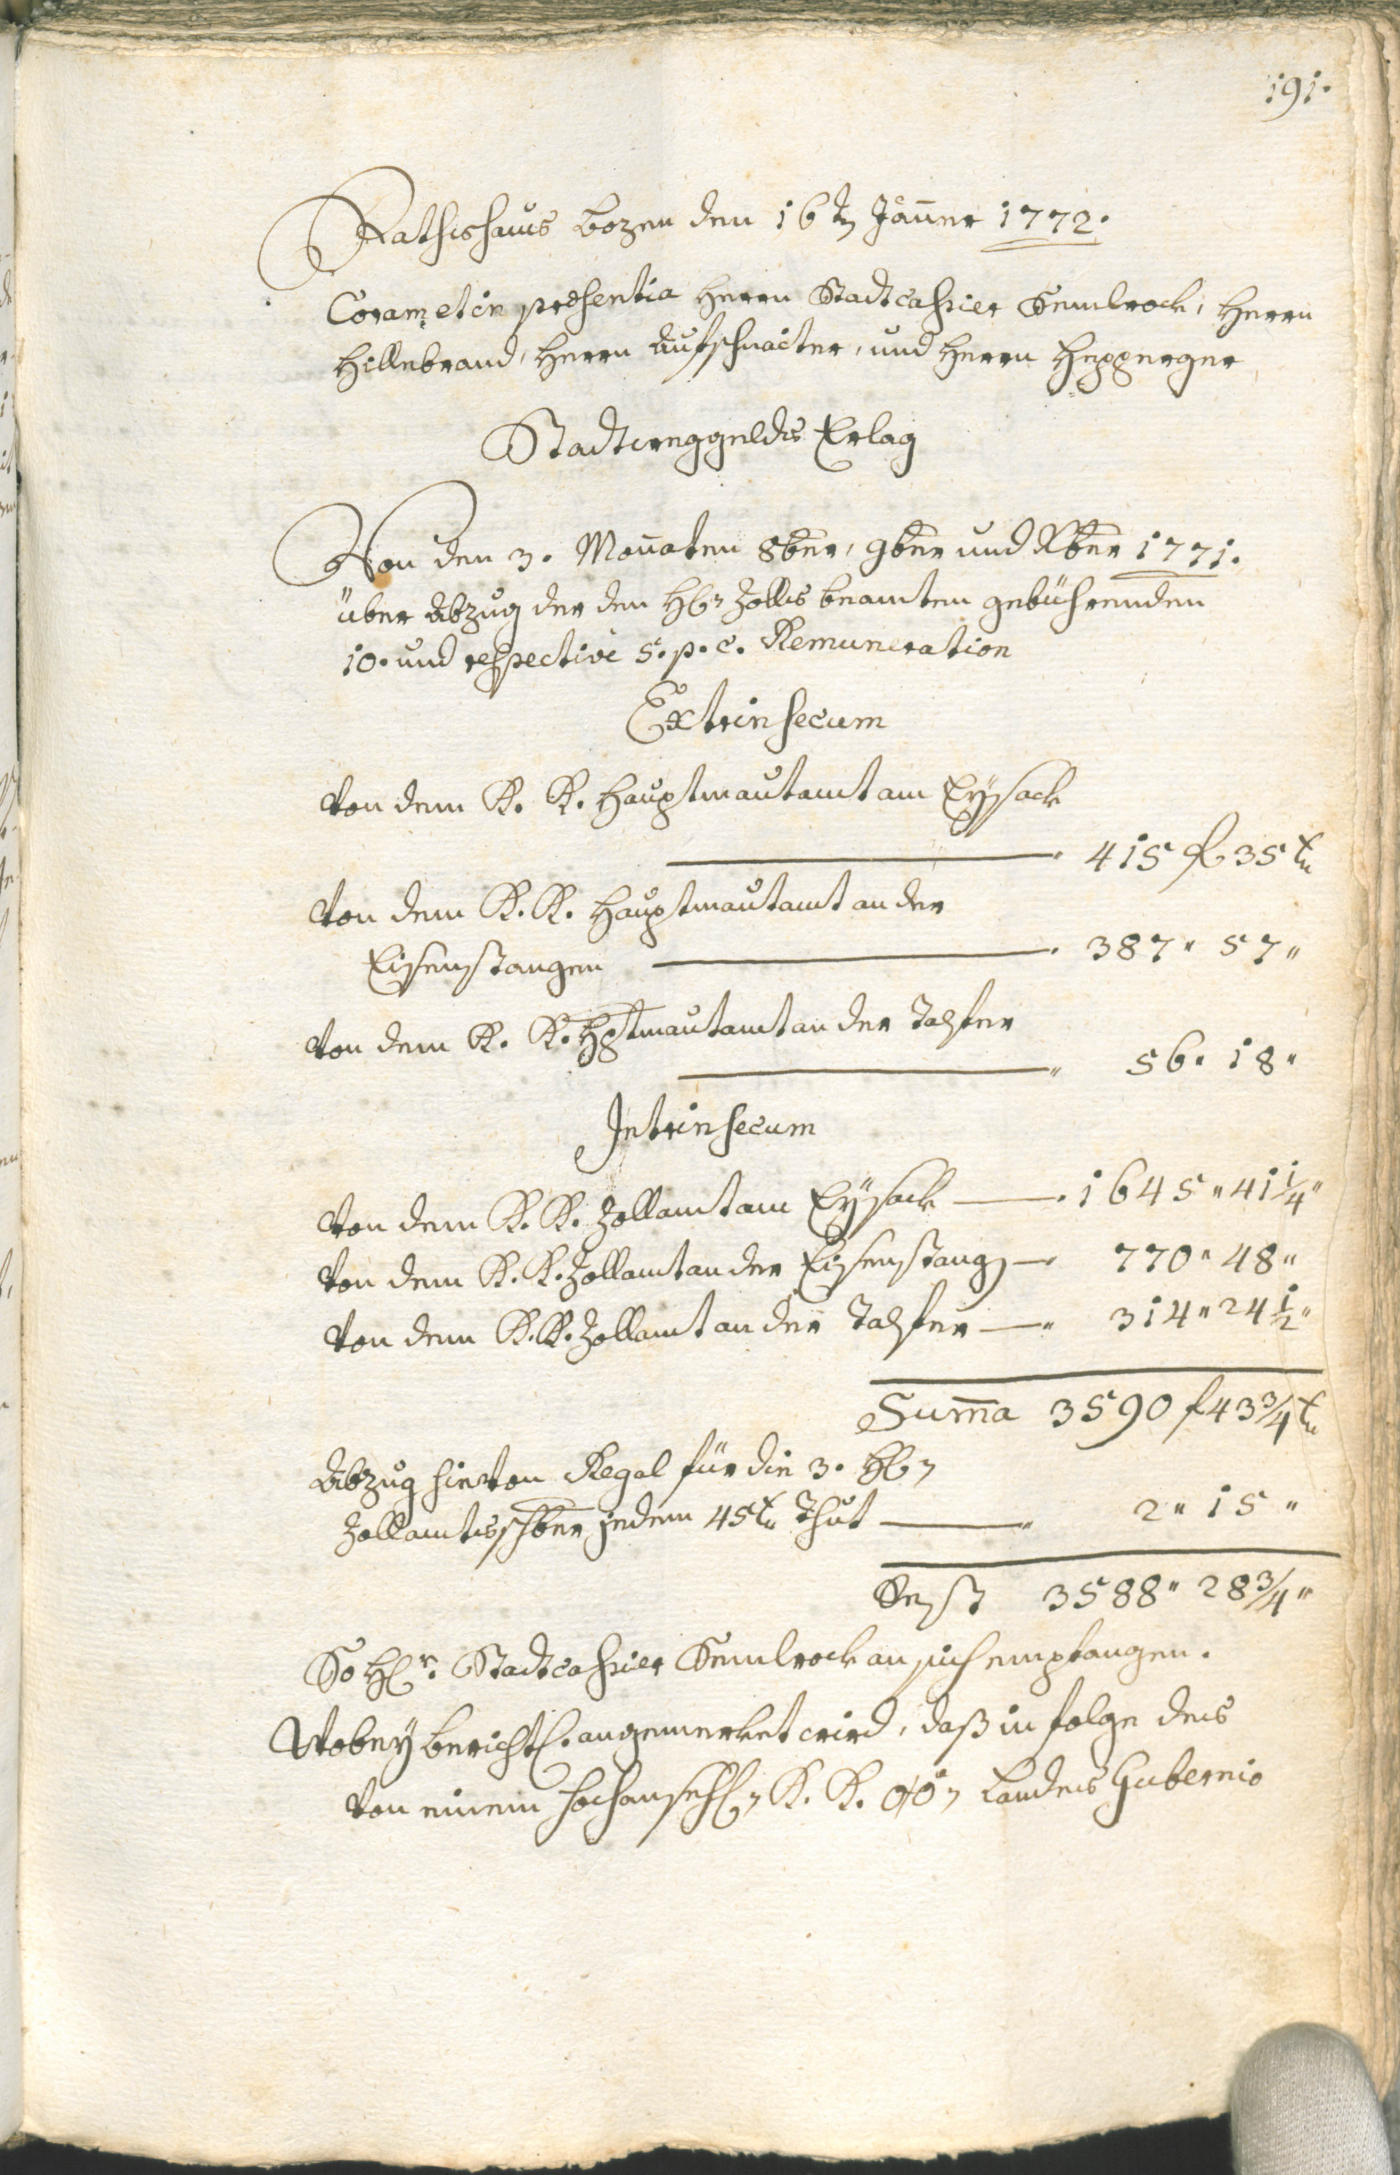 191.
Rathshaus Bozen den 16tn Jäner 1772.
Coram et in præsentia Herrn Stadtcassier Gumlrock, Herrn
Hillebrand, Herrn Aufschnaiter, und Herrn Hepperger
Stadtweggelds Erlag
Von den 3. Monaten 8ber, 9ber und Xber 1771.
über Abzug der den Hhn Zolls beamten gebührenden
10. und respective 5. p. c. Remuneration
Extrinsecum
Von dem K. K. Hauptmautamt am Eysack
415 f 35 xr
Von dem K. K. Hauptmautamt an der
Eisenstangen 387 " 57 "
Von dem K. K. Hptmautamt an der Talfer
56 " 18 "
Intrinsecum
Von dem K. K. Zollamt am Eysack 1645 " 41 1/4 "
Von dem K. K. Zollamt an der Eisenstang 770 " 48 "
Von dem K. K. Zollamt an der Talfer 314 " 24 1/2 "
Suma 3590 f 43 3/4 xr
Abzug hievon Regal für die 3. Hhn
Zollamtsschber jedem 45 xr Thut 2 " 15 "
Rest 3588 " 28 3/4 "
So Hr. Stadtcassier Gumlrock an sich empfangen.
Wobey bericht. angemerket wird, daß in folge des
Von einem hochansehln K. K. OÖn Landes Gubernio